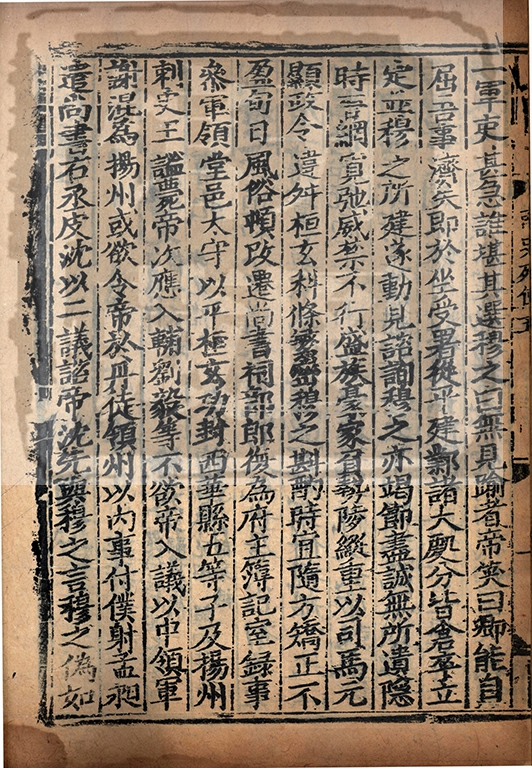 一軍吏甚急誰堪其選穆之曰無見踰者帝笑曰卿能自
屈吾事濟矣即於坐受署從平建鄴諸大處分皆倉卒立
定並穆之所建遂動見諮詢穆之亦竭節盡誠無所遺隱
時晉網寬弛威禁不行盛族豪家負埶陵縱重以司馬元
顯政令違舛桓玄科條繁密穆之斟酌時宜隨方矯正不
盈旬日風俗頓改遷尚書祠部郎復為府主簿記室錄事
參軍領堂邑太守以平桓玄功封西華縣五等子及揚州
刺史王謐薨帝次應入輔劉毅等不欲帝入議以中領軍
謝混為揚州或欲令帝於丹徒領州以內事付僕射孟昶
遣尚書右丞皮沈以二議諮帝沈先與穆之言穆之偽如